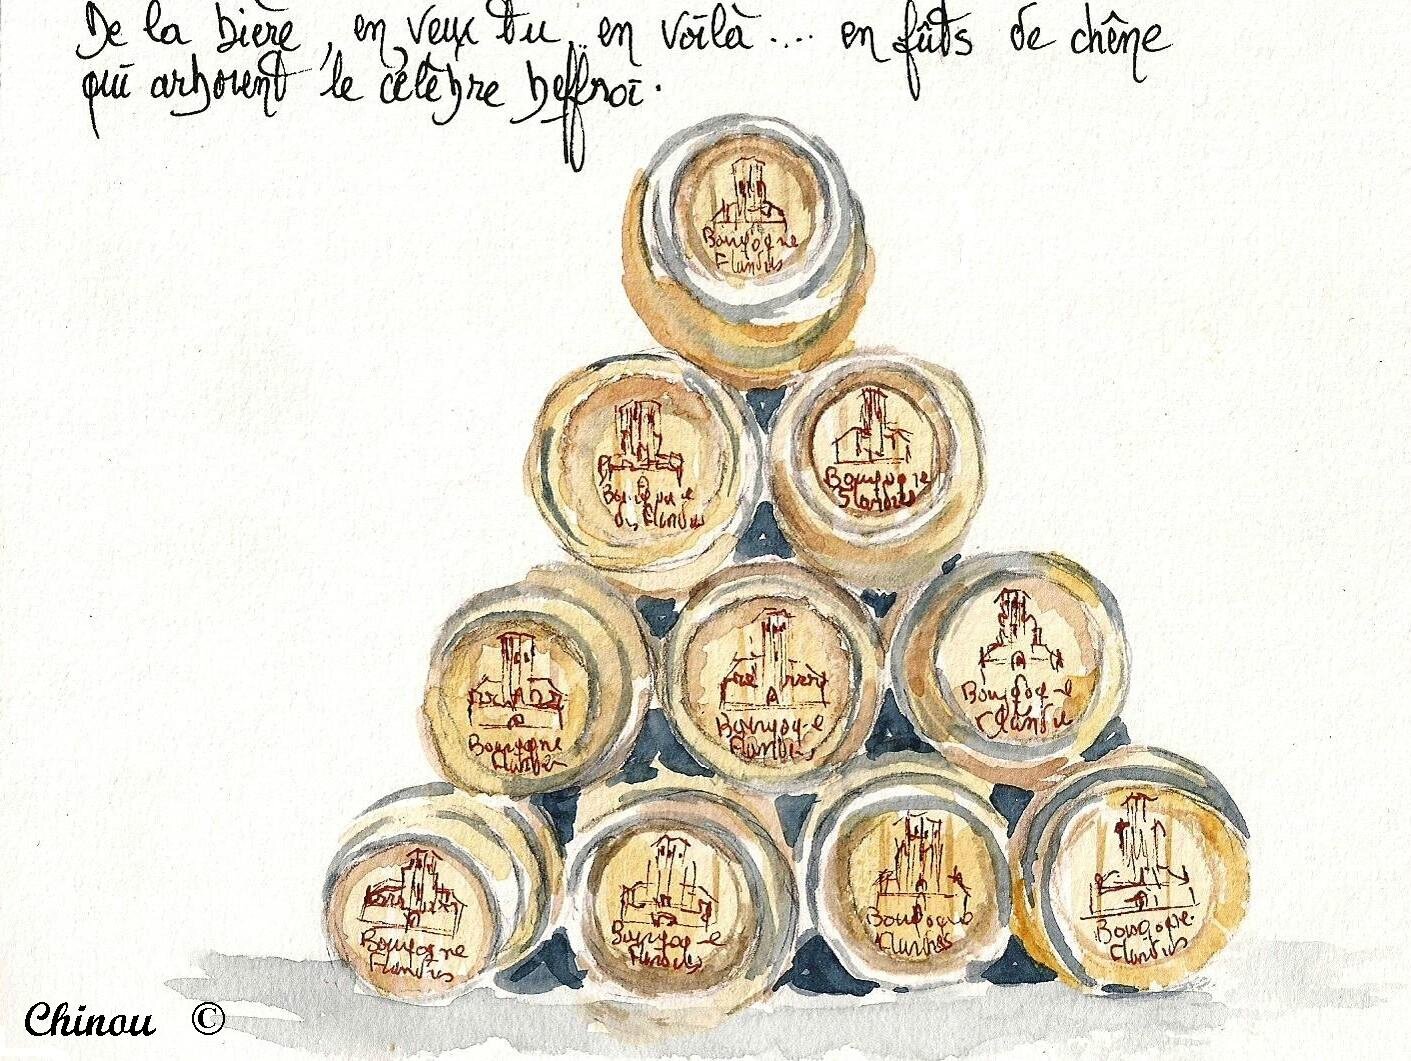 De la bière, en veux tu .. en voilà .... en fûts de chêne
qui arborent le célèbre beffroi.
Bourgogne
Flandres
Bourgogne
des Flandres
Bourgogne
Flandres
Bourgogne
Flandres
Bourgogne
Flandres
Bourgogne
Flandre
Bourgogne
Flandres
Bourgogne
Flandres
Bourgogne
Flandres
Bourgogne
Flandres
Chinou ©